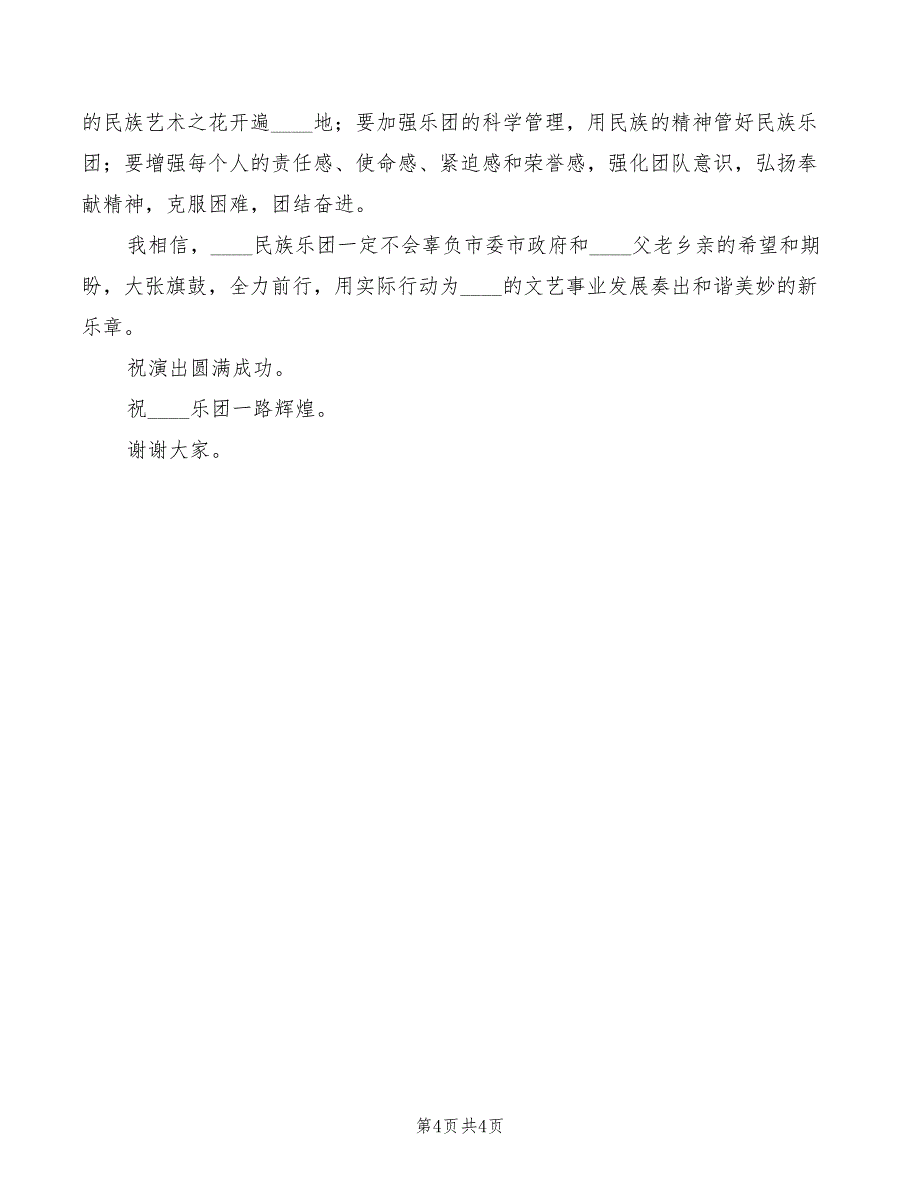 的民族艺术之花开遍____地；要加强乐团的科学管理，用民族的精神管好民族乐
团；要增强每个人的责任感、使命感、紧迫感和荣誉感，强化团队意识，弘扬奉
献精神，克服困难，团结奋进。
我相信，____民族乐团一定不会辜负市委市政府和____父老乡亲的希望和期
盼，大张旗鼓，全力前行，用实际行动为____的文艺事业发展奏出和谐美妙的新
乐章。
祝演出圆满成功。
祝____乐团一路辉煌。
谢谢大家。
第4页 共4页